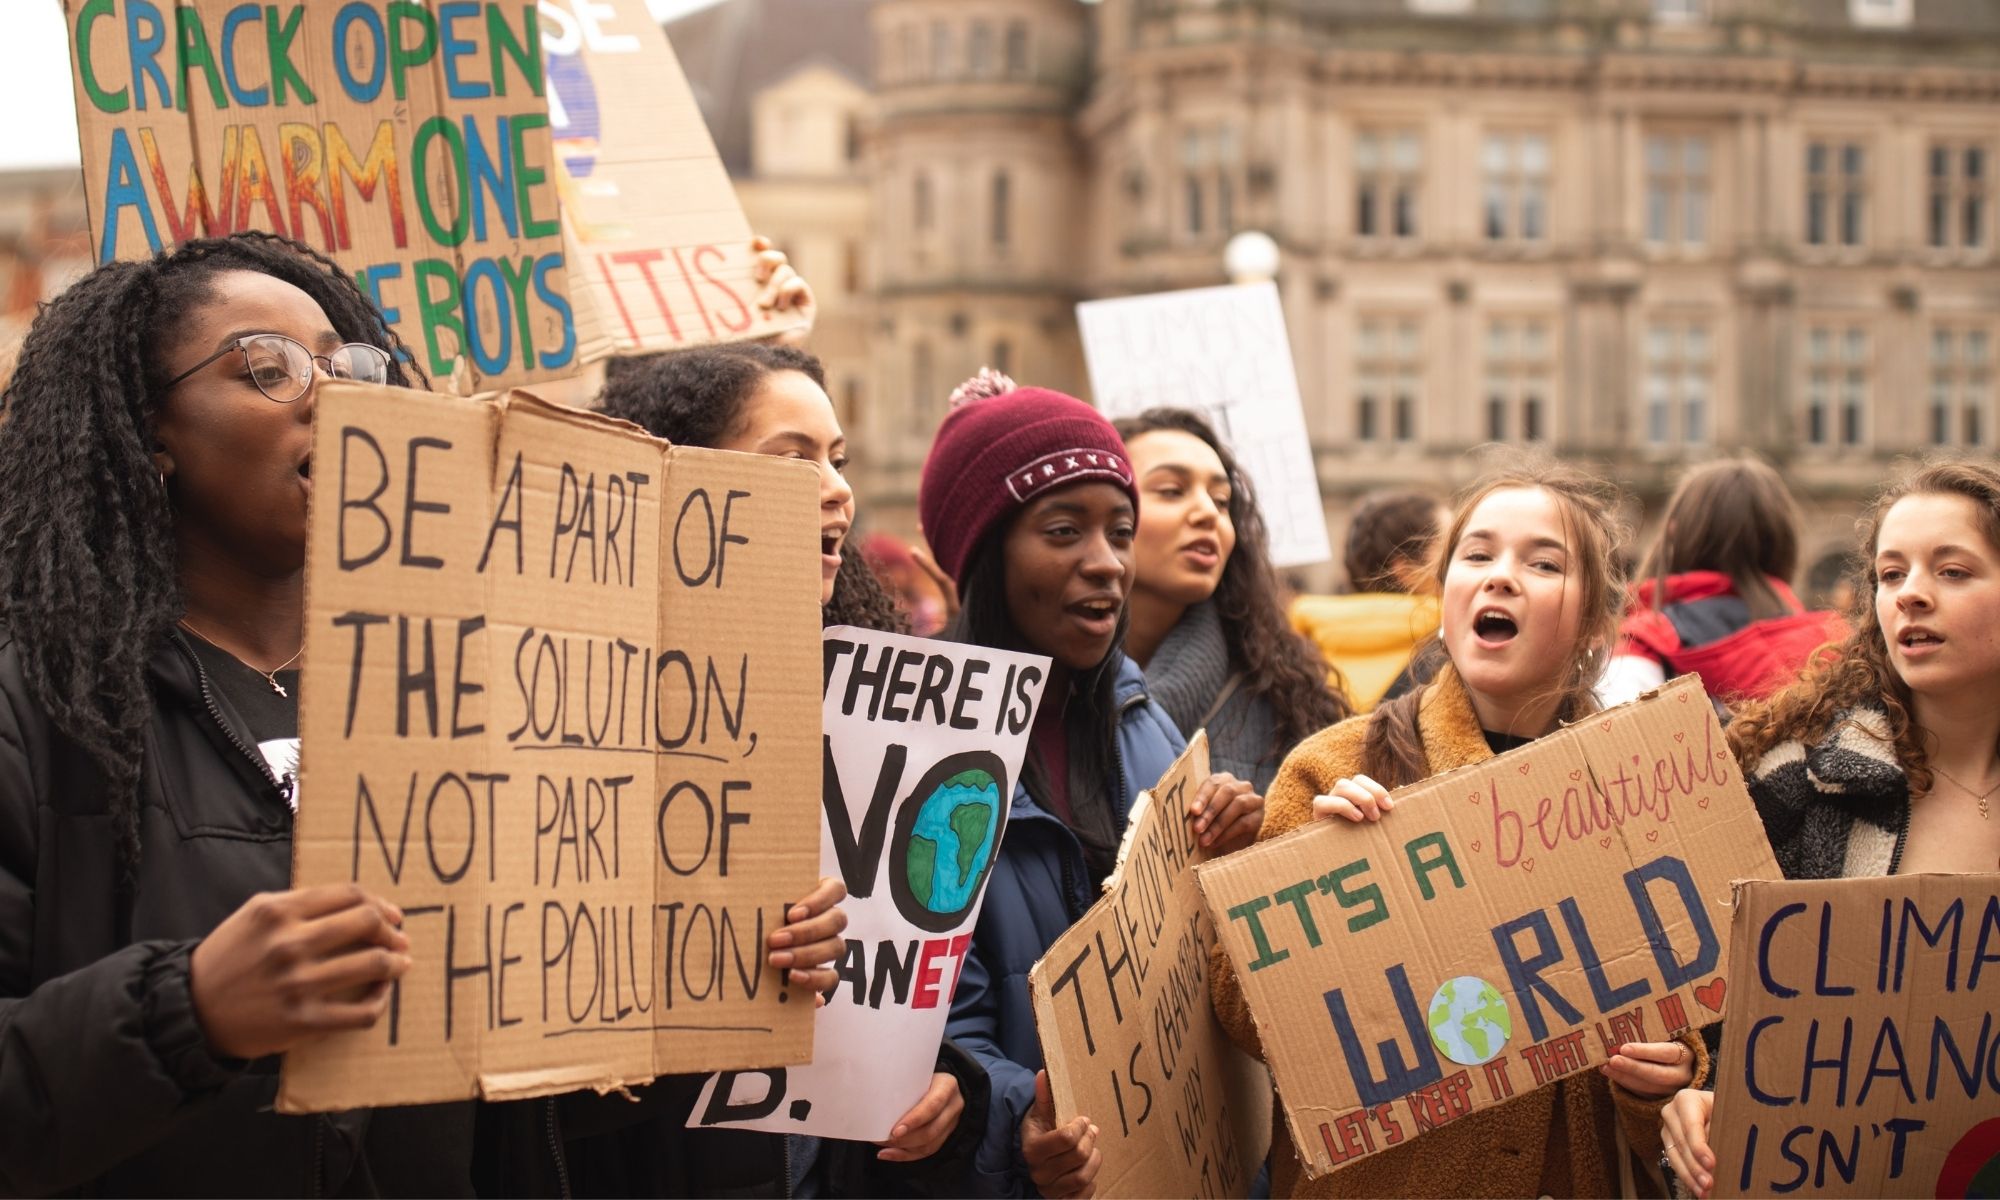 CRACK OPEN
A WARM ONE
BOYS
SE
IT IS
BE A PART OF
THE SOLUTION,
NOT PART OF
THE POLLUTON!
THERE IS
NO
ANET
B.
TRXYE
HUMAN
THE CLIMATE
IS CHANGING
WHY
IT'S A beautiful
WORLD
LET'S KEEP IT THAT WAY !!!
CLIMA
CHANG
ISN'T